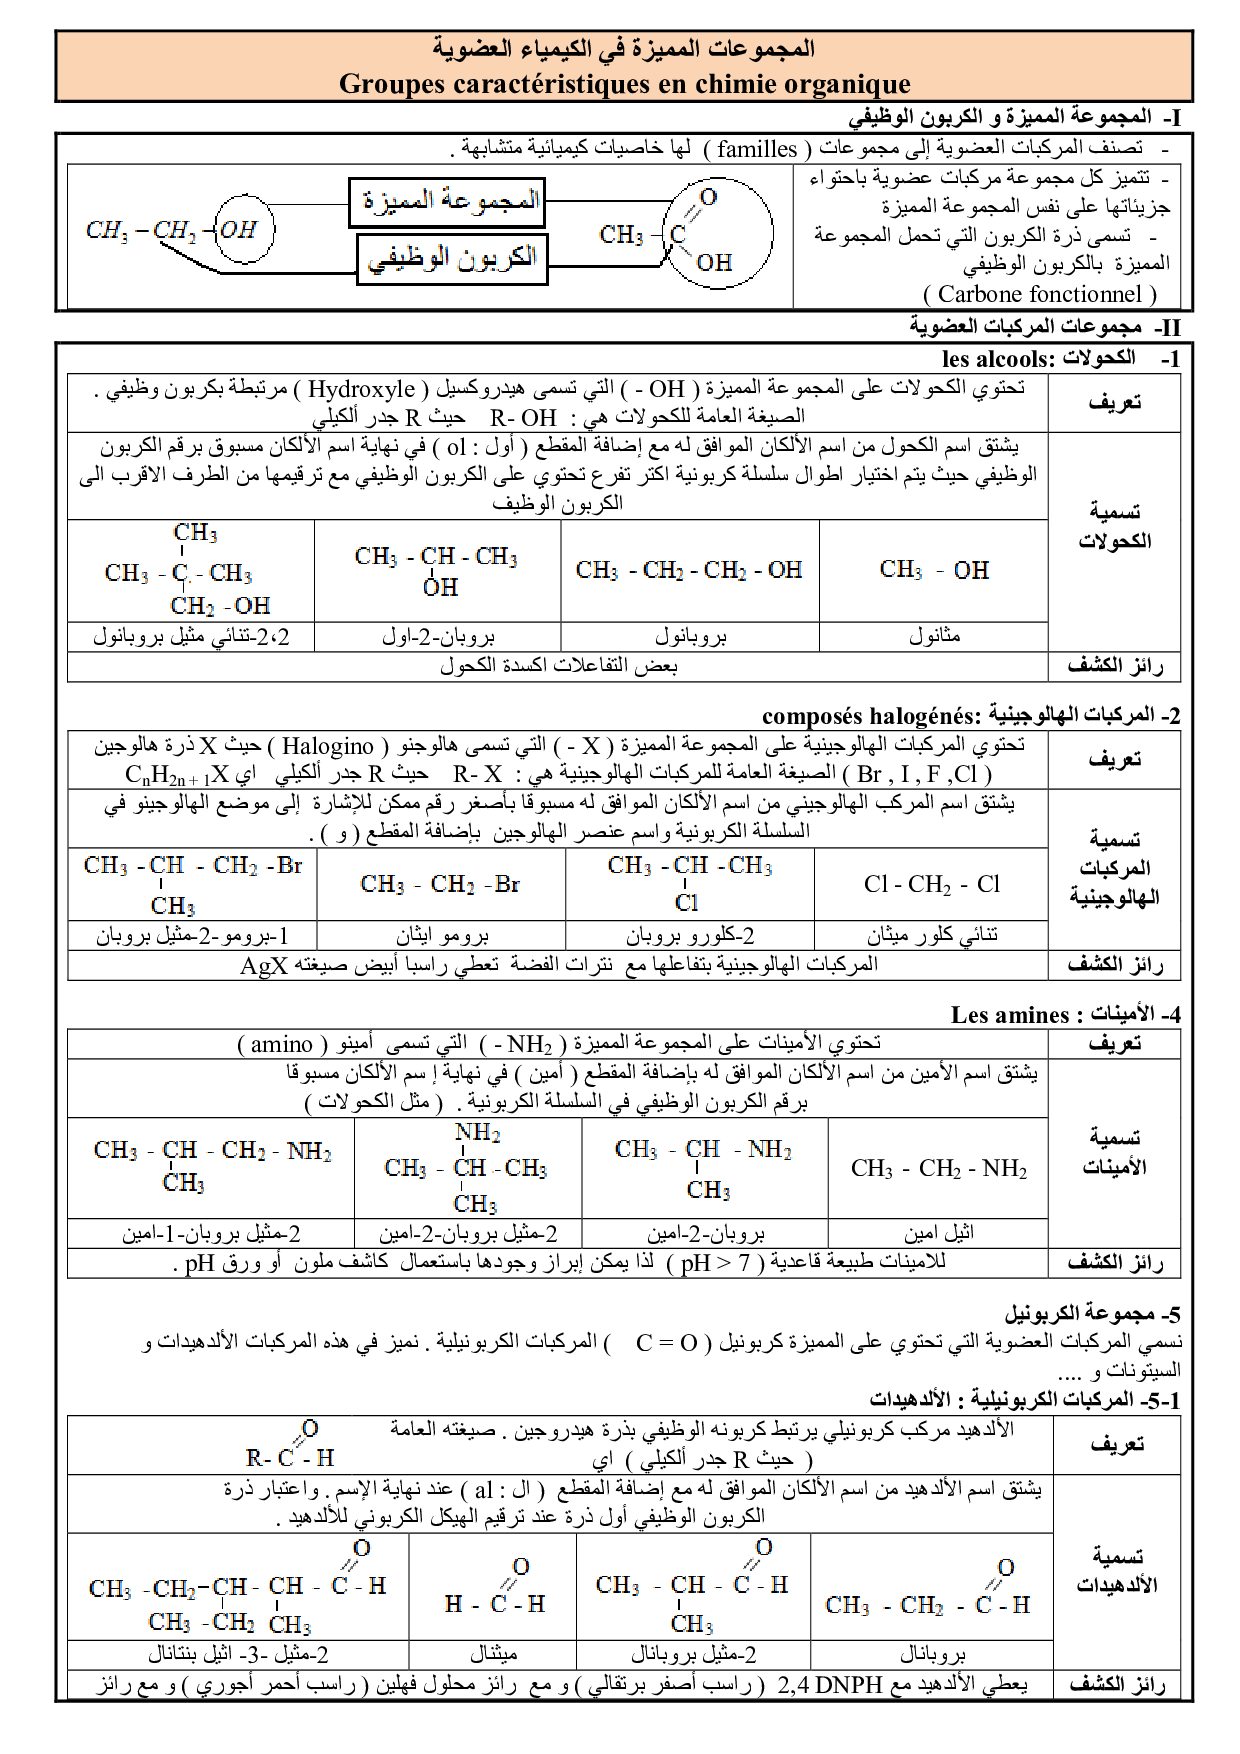 المجموعات المميزة في الكيمياء العضوية
Groupes caractéristiques en chimie organique
I- المجموعة المميزة و الكربون الوظيفي
- تصنف المركبات العضوية إلى مجموعات ( familles ) لها خاصيات كيميائية متشابهة .
- تتميز كل مجموعة مركبات عضوية باحتواء
جزيئاتها على نفس المجموعة المميزة
- تسمى ذرة الكربون التي تحمل المجموعة
المميزة بالكربون الوظيفي
( Carbone fonctionnel )
المجموعة المميزة
الكربون الوظيفي
CH3 – CH2 – OH
O
CH3 – C
OH
II- مجموعات المركبات العضوية
1- الكحولات :les alcools
تعريف
تحتوي الكحولات على المجموعة المميزة ( OH - ) التي تسمى هيدروكسيل ( Hydroxyle ) مرتبطة بكربون وظيفي .
الصيغة العامة للكحولات هي : R- OH حيث R جدر ألكيلي
تسمية
الكحولات
يشتق اسم الكحول من اسم الألكان الموافق له مع إضافة المقطع ( أول : ol ) في نهاية اسم الألكان مسبوق برقم الكربون
الوظيفي حيث يتم اختيار اطوال سلسلة كربونية اكتر تفرع تحتوي على الكربون الوظيفي مع ترقيمها من الطرف الاقرب الى
الكربون الوظيف
CH3 - OH
CH3 - CH2 - CH2 - OH
CH3 - CH - CH3
OH
CH3
CH3 - C - CH3
CH2 - OH
مثانول
بروبانول
بروبان-2-اول
2،2-تنائي مثيل بروبانول
رائز الكشف
بعض التفاعلات اكسدة الكحول
2- المركبات الهالوجينية :composés halogénés
تعريف
تحتوي المركبات الهالوجينية على المجموعة المميزة ( X - ) التي تسمى هالوجنو ( Halogino ) حيث X ذرة هالوجين
( Br , I , F ,Cl ) الصيغة العامة للمركبات الهالوجينية هي : R- X حيث R جدر ألكيلي اي CnH2n + 1X
تسمية
المركبات
الهالوجينية
يشتق اسم المركب الهالوجيني من اسم الألكان الموافق له مسبوقا بأصغر رقم ممكن للإشارة إلى موضع الهالوجينو في
السلسلة الكربونية واسم عنصر الهالوجين بإضافة المقطع ( و ) .
Cl - CH2 - Cl
CH3 - CH - CH3
Cl
CH3 - CH2 - Br
CH3 - CH - CH2 - Br
CH3
تنائي كلور ميثان
2-كلورو بروبان
برومو ايثان
1-برومو-2-مثيل بروبان
رائز الكشف
المركبات الهالوجينية بتفاعلها مع نترات الفضة تعطي راسبا أبيض صيغته AgX
4- الأمينات : Les amines
تعريف
تحتوي الأمينات على المجموعة المميزة ( NH2 - ) التي تسمى أمينو ( amino )
تسمية
الأمينات
يشتق اسم الأمين من اسم الألكان الموافق له بإضافة المقطع ( أمين ) في نهاية إ سم الألكان مسبوقا
برقم الكربون الوظيفي في السلسلة الكربونية . ( مثل الكحولات )
CH3 - CH2 - NH2
CH3 - CH - NH2
CH3
NH2
CH3 - CH - CH3
CH3
CH3 - CH - CH2 - NH2
CH3
اثيل امين
بروبان-2-امين
2-مثيل بروبان-2-امين
2-مثيل بروبان-1-امين
رائز الكشف
للامينات طبيعة قاعدية ( pH > 7 ) لذا يمكن إبراز وجودها باستعمال كاشف ملون أو ورق pH .
5- مجموعة الكربونيل
نسمي المركبات العضوية التي تحتوي على المميزة كربونيل ( C = O ) المركبات الكربونيلية . نميز في هذه المركبات الألدهيدات و
السيتونات و ....
5-1- المركبات الكربونيلية : الألدهيدات
تعريف
الألدهيد مركب كربونيلي يرتبط كربونه الوظيفي بذرة هيدروجين . صيغته العامة
( حيث R جدر ألكيلي ) اي
O
R- C - H
تسمية
الألدهيدات
يشتق اسم الألدهيد من اسم الألكان الموافق له مع إضافة المقطع ( ال : al ) عند نهاية الإسم . واعتبار ذرة
الكربون الوظيفي أول ذرة عند ترقيم الهيكل الكربوني للألدهيد .
O
CH3 - CH2 - C - H
O
CH3 - CH - C - H
CH3
O
H - C - H
O
CH3 -CH2-CH - CH - C - H
CH3 -CH2 CH3
بروبانال
2-مثيل بروبانال
ميثنال
2-مثيل -3- اثيل بنتانال
رائز الكشف
يعطي الألدهيد مع 2,4 DNPH ( راسب أصفر برتقالي ) و مع رائز محلول فهلين ( راسب أحمر أجوري ) و مع رائز